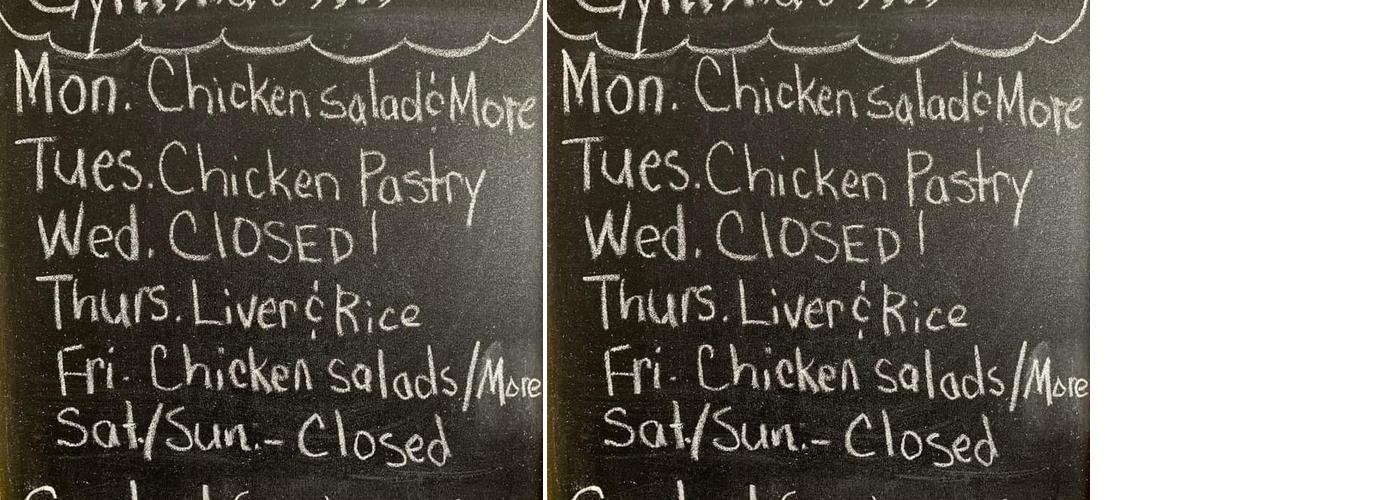 Mon. Chicken salad & More
Tues. Chicken Pastry
Wed. ClOSED!
Thurs. Liver & Rice
Fri. Chicken salads/More
Sat/Sun.- Closed
Mon. Chicken salad & More
Tues. Chicken Pastry
Wed. ClOSED!
Thurs. Liver & Rice
Fri. Chicken salads/More
Sat/Sun.- Closed